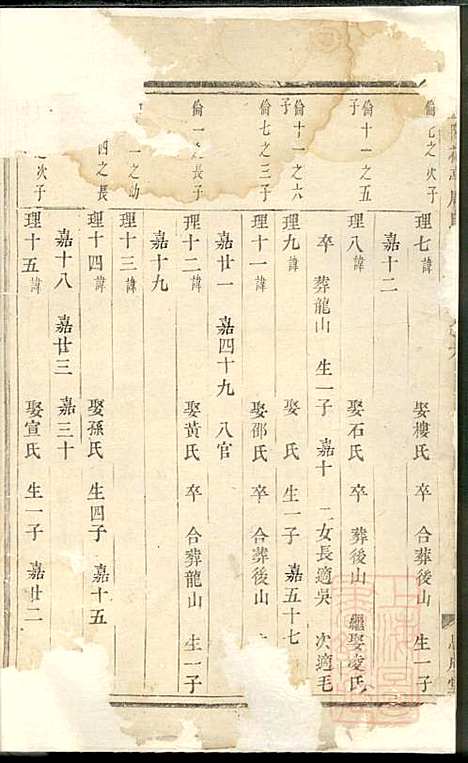 倫七之次子
理七諱 娶樓氏 卒 合葬後山 生一子
嘉十二
倫十一之五子
理八諱 娶石氏 卒 葬後山 繼娶凌氏
卒 葬龍山 生一子 嘉十 二女長適吳 次適毛
倫十一之六子
理九諱 娶 氏 生一子 嘉五十七
倫七之三子
理十一諱 娶邵氏 卒 合葬後山
嘉廿一 嘉四十九 八官
倫一之長子
理十二諱 娶黃氏 卒 合葬龍山 生一子
嘉十九
一之幼
理十三諱
四之長
理十四諱 娶孫氏 生四子 嘉十五
嘉十八 嘉廿三 嘉三十
之次子
理十五諱 娶宣氏 生一子 嘉廿二